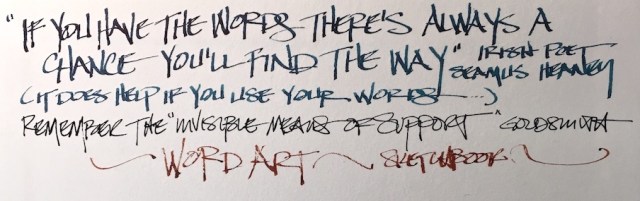 "IF YOU HAVE THE WORDS THERE'S ALWAYS A
CHANCE YOU'LL FIND THE WAY" IRISH POET
SEAMUS HEANEY
(IT DOES HELP IF YOU USE YOUR WORDS...)
REMEMBER THE "INVISIBLE MEANS OF SUPPORT" GOLDSMITH
WORD ART SKETCHBOOK